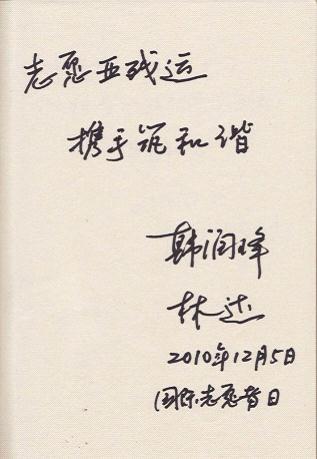 志愿亚残运
携手筑和谐
韩润峰
林达
2010年12月5日
国际志愿者日